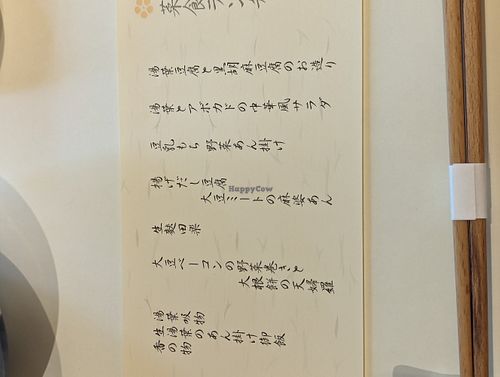 菜食ランチ
湯葉豆腐と黒胡麻豆腐のお造り
湯葉とアボカドの中華風サラダ
豆乳もち 野菜あん掛け
揚げだし豆腐
大豆ミートの麻婆あん
生麩田楽
大豆ベーコンの野菜巻きと
大根餅の天婦羅
湯葉吸物
生湯葉のあん掛け御飯
香の物
HappyCow